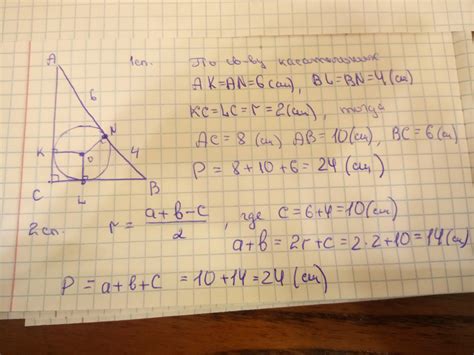 1сп. По св-ву касательных
AK=AN=6(см), BL=BN=4(см)
KC=LC=r=2(см), тогда
AC=8(см) AB=10(см), BC=6(см)
P=8+10+6=24(см)
A
6
N
K
O
4
C
L
B
2сп. r=(a+b-c)/2, где c=6+4=10(см)
a+b=2r+c=2·2+10=14(см)
P=a+b+c=10+14=24(см)